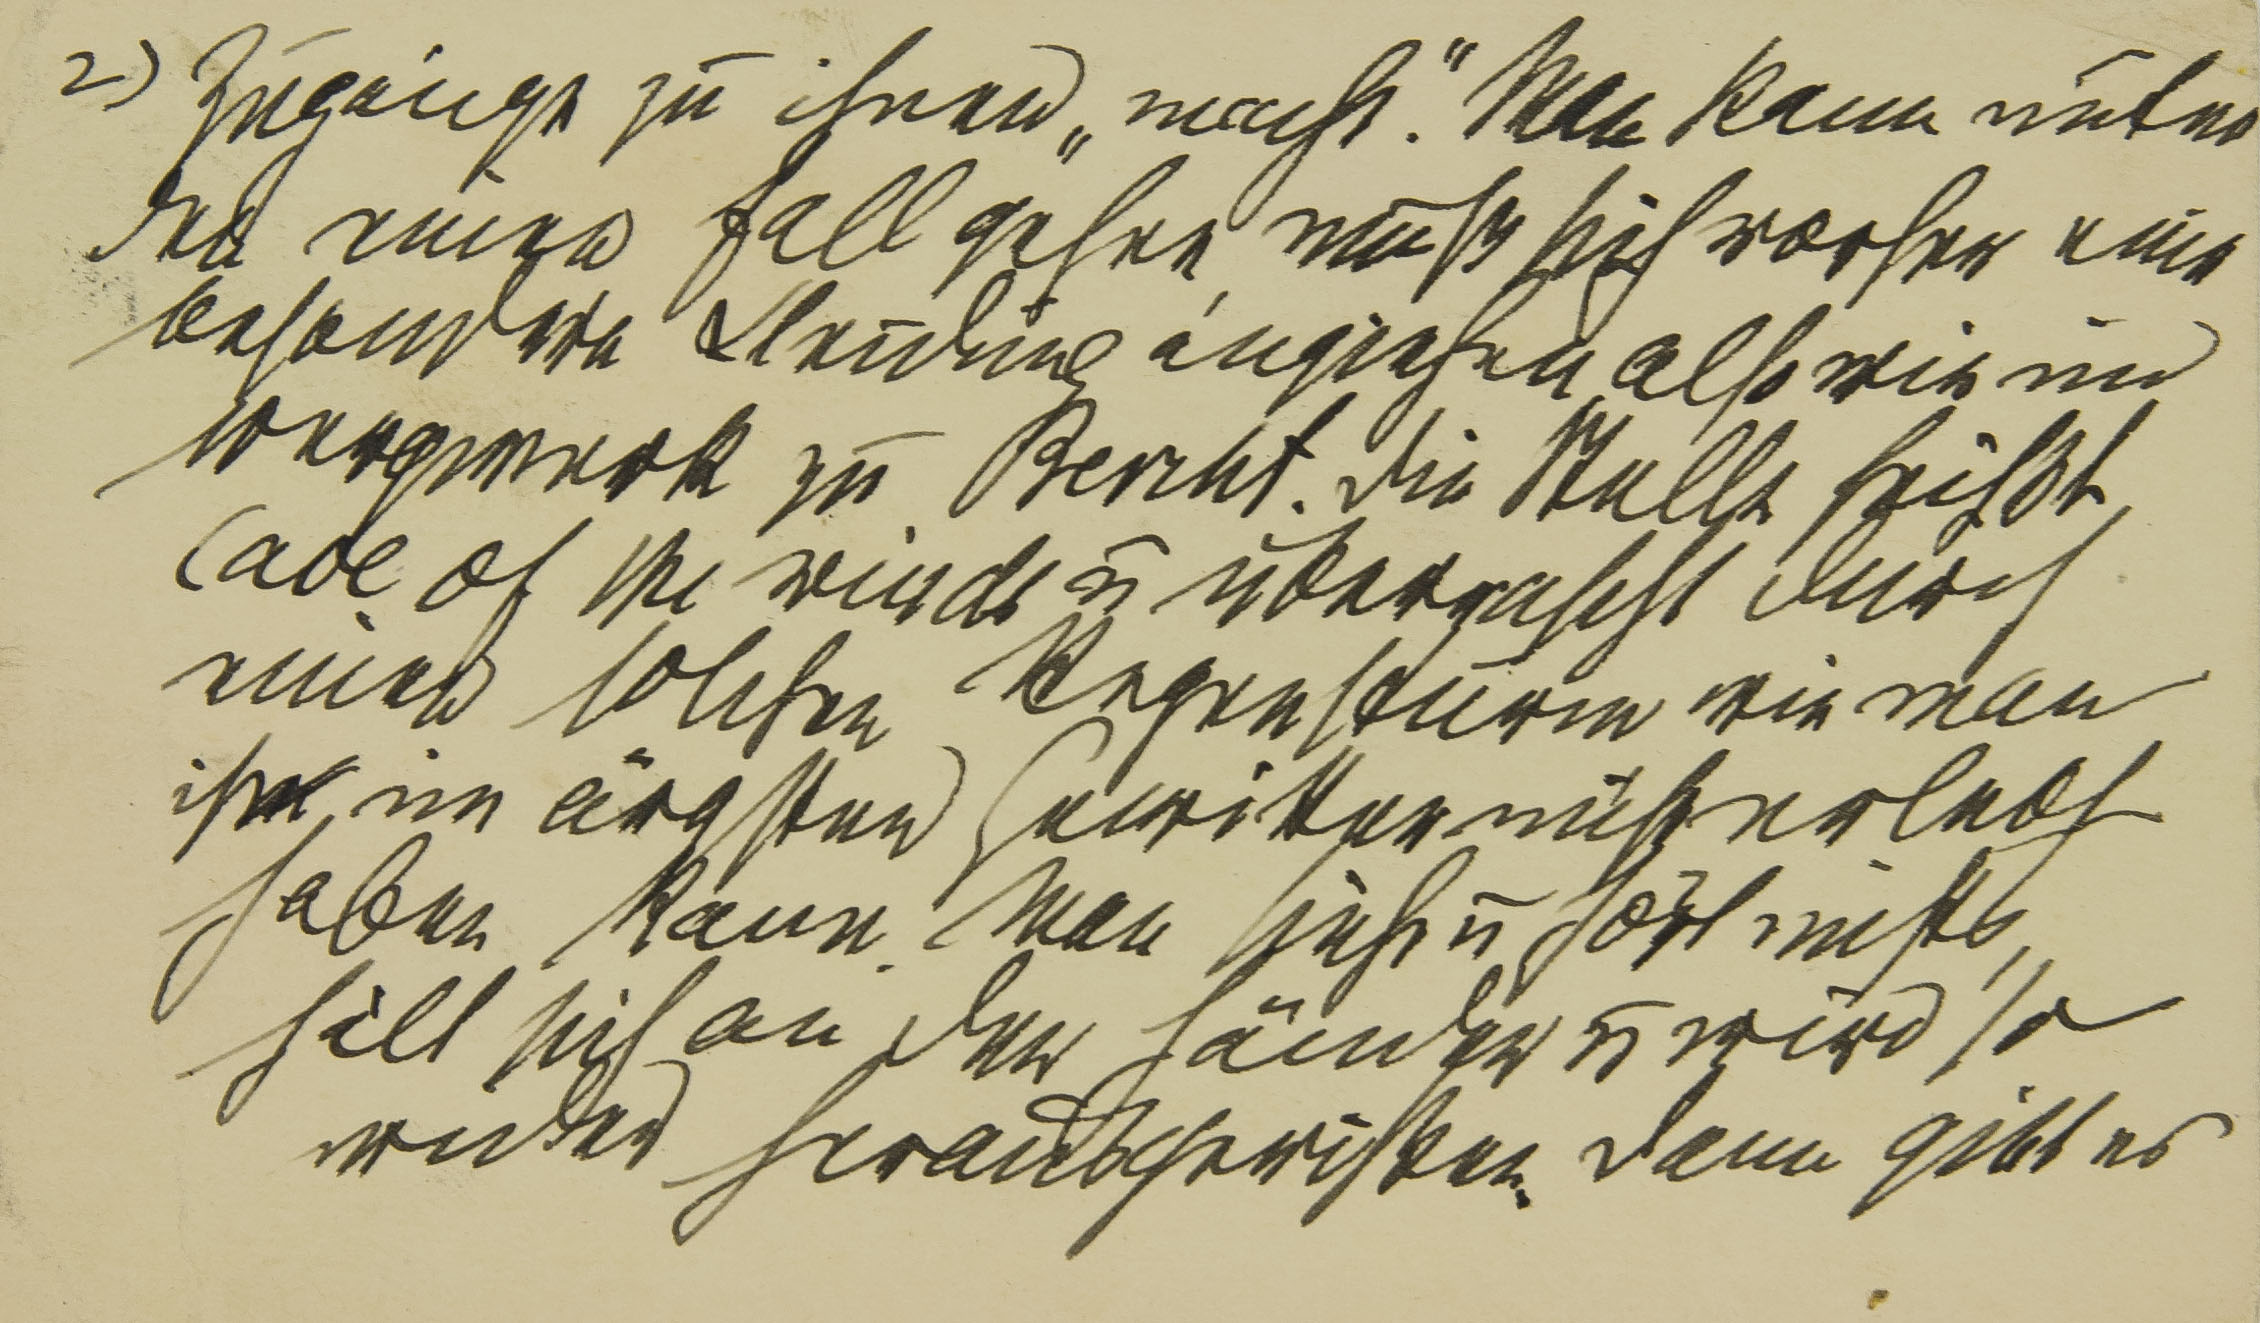 2) Zugänge zu ihnen „macht." Man kann unter
den einen Fall gehen, muß sich vorher eine
besondere Kleidung anziehen also wie im
Bergwerk zu Bercht. Die Stelle heißt
Cave of the winds u überrascht durch
einen solchen Regensturm wie man
ihn im ärgsten Gewitter nicht erlebt
haben kann. Man sieht u hört nichts,
hält sich an den Händen u wird so
wieder herausgerissen. Dann gibt es